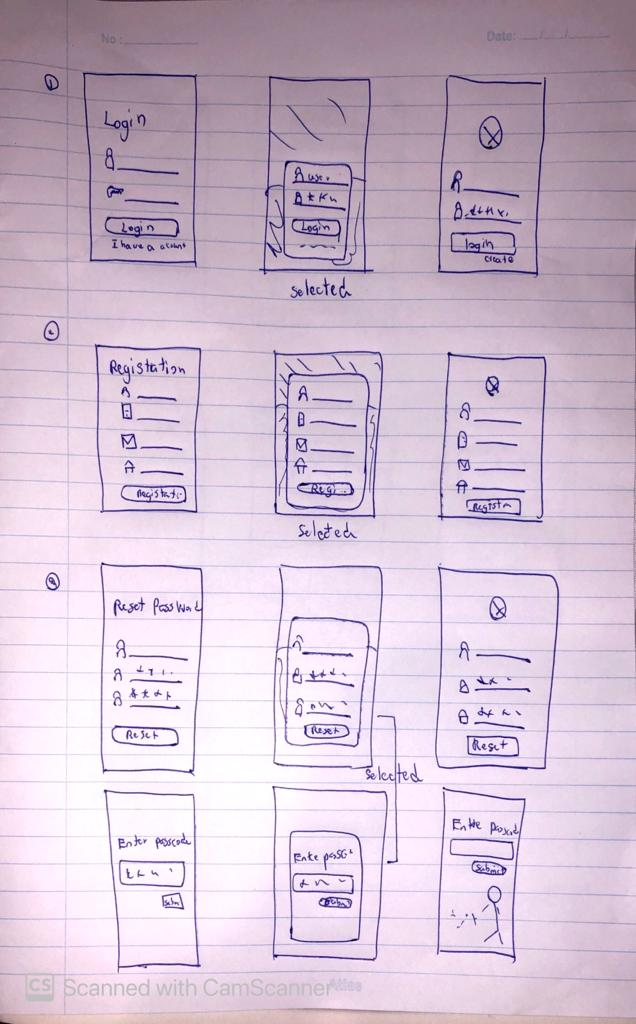 No:
Date:
1
Login
Login
I have a acount
user
Login
selected
login
create
2
Registation
Registati..
Regi..
selected
Registn
3
Reset Password
Reset
Reset
selected
Reset
Enter passcode
Subm
Ente passc
Submi
Ente passcod
Submit
CS Scanned with CamScanner
Atlas